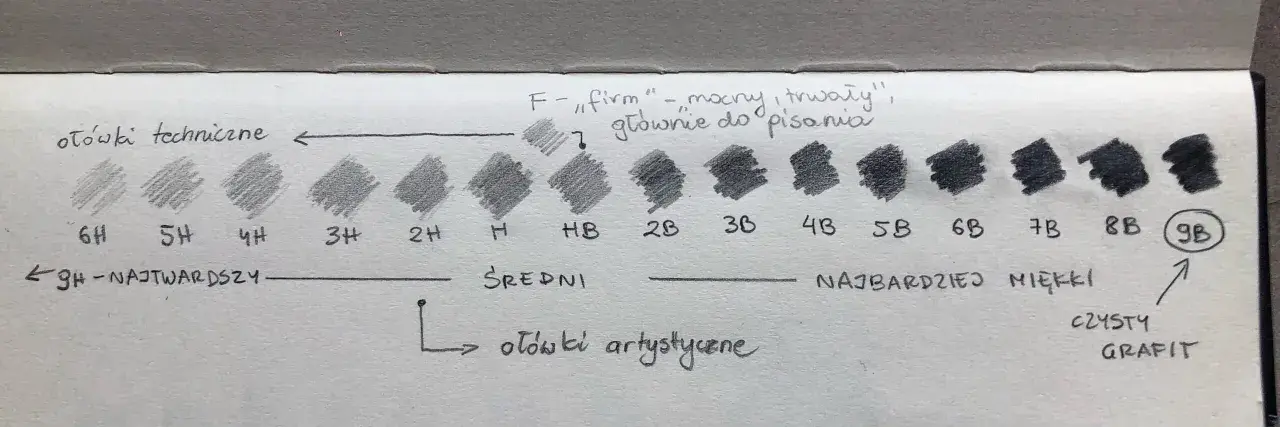 F – „firm" – „mocny, trwały",
głównie do pisania
ołówki techniczne
6H 5H 4H 3H 2H H HB 2B 3B 4B 5B 6B 7B 8B 9B
9H – NAJTWARDSZY ŚREDNI NAJBARDZIEJ MIĘKKI
CZYSTY
GRAFIT
ołówki artystyczne